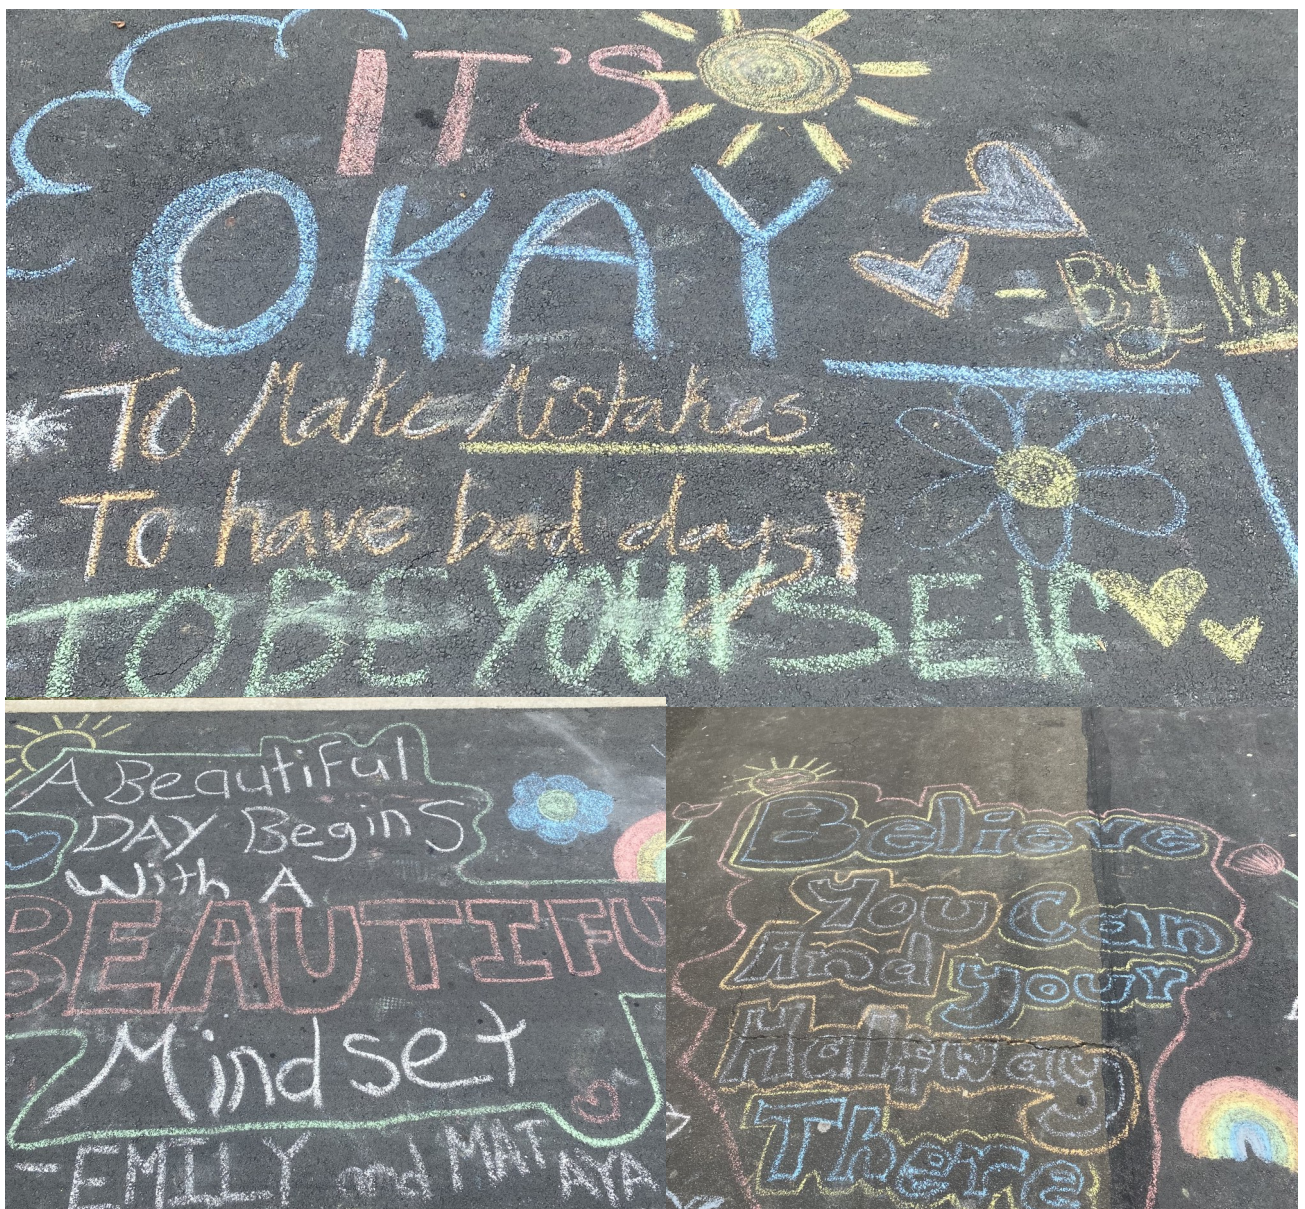 IT'S
OKAY
- By
To Make Mistakes
To have bad days!
TO BE YOURSELF
A Beautiful
DAY Begins
With A
BEAUTIFU
Mindset
- EMILY and MATAYA
Believe
You Can
And your
Halfway
There